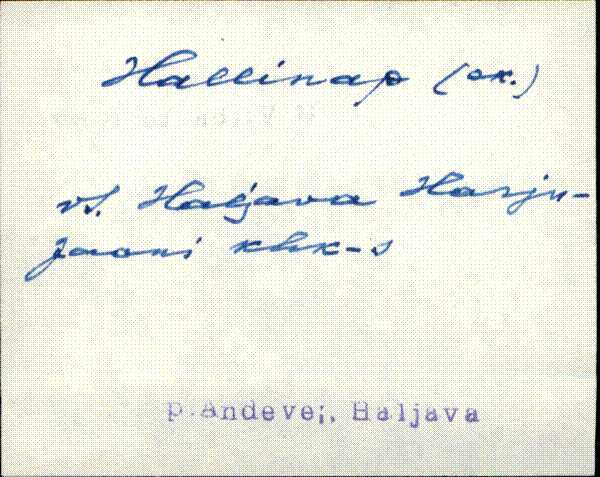 Hallinap (ok.)
vt. Haljava Harju-
Jaani khk-s
p. Andevei, Haljava